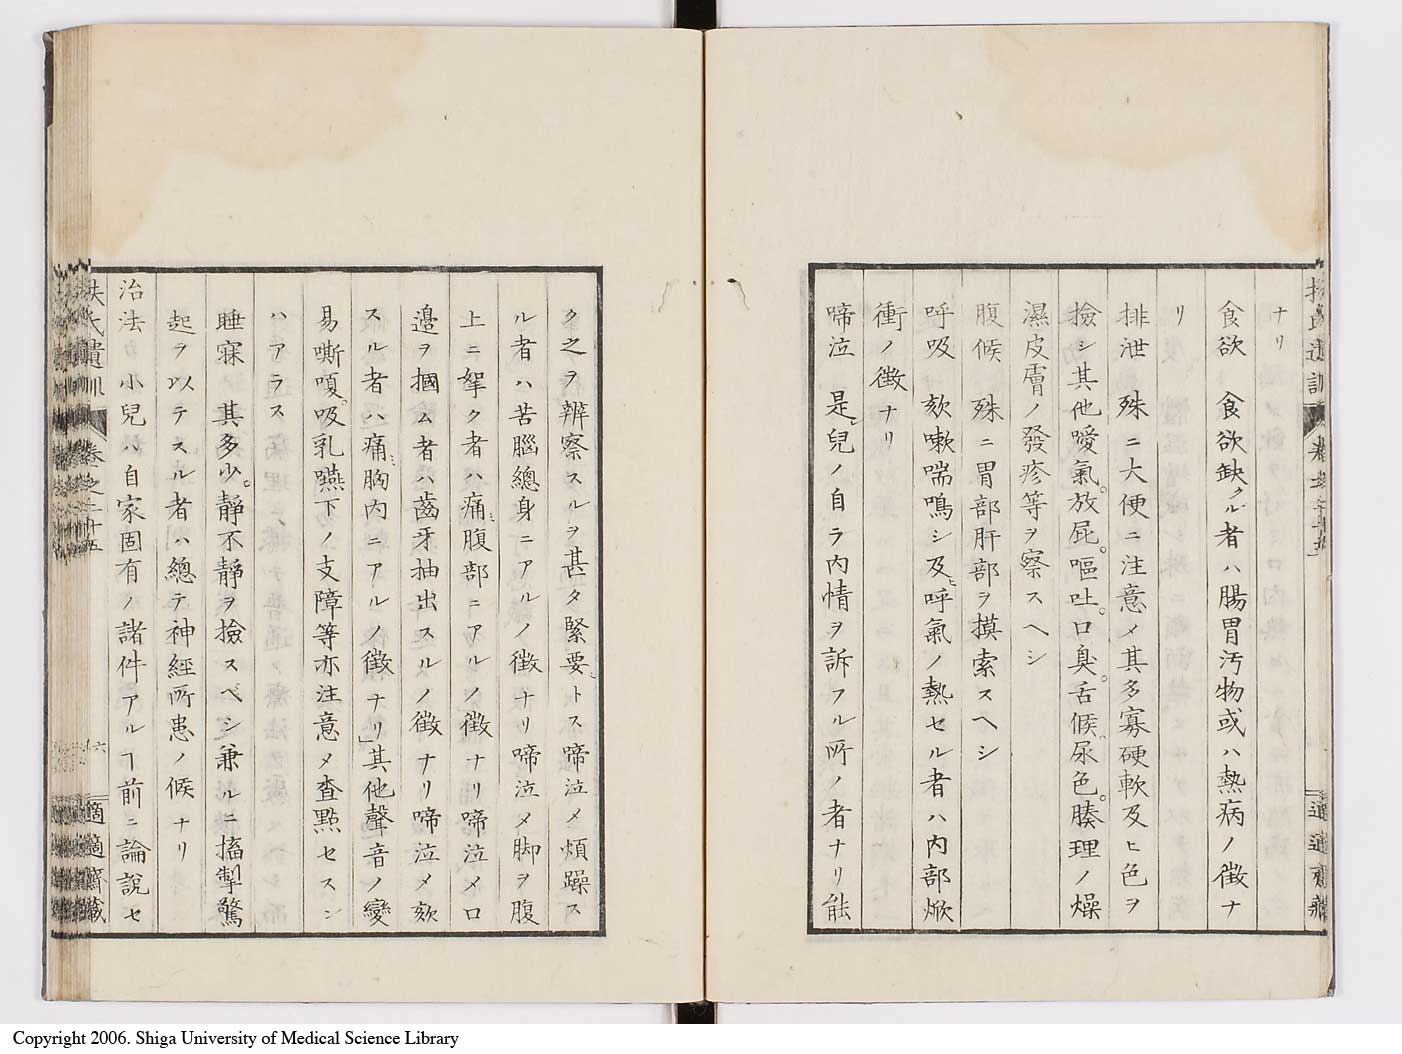 ナリ
食欲 食欲缺クル者ハ腸胃汚物或ハ熱病ノ徴ナ
リ
排泄 殊ニ大便ニ注意メ其多寡硬軟及ヒ色ヲ
撿シ其他噯氣。放屁。嘔吐。口臭。舌候。尿色。腠理ノ燥
濕皮膚ノ發疹等ヲ察スヘシ
腹候 殊ニ胃部肝部ヲ摸索スヘシ
呼吸 欬嗽喘鳴シ及ヒ呼氣ノ熱セル者ハ内部焮
衝ノ徴ナリ
啼泣 是レ兒ノ自ラ内情ヲ訴フル所ノ者ナリ能
ク之ヲ辨察スルヲ甚タ緊要トス啼泣メ煩躁ス
ル者ハ苦腦總身ニアルノ徴ナリ啼泣メ脚ヲ腹
上ニ牽ク者ハ痛ミ腹部ニアルノ徴ナリ啼泣メ口
邊ヲ摑ム者ハ齒牙抽出スルノ徴ナリ啼泣メ欬
スル者ハ痛ミ胸内ニアルノ徴ナリ」其他聲音ノ變
易嘶嗄、吸乳嚥下ノ支障等亦注意メ査點セスン
ハアラス
睡寐 其多少。靜不靜ヲ撿スベシ兼ルニ搐掣驚
起ヲ以テスル者ハ總テ神經所患ノ候ナリ
治法 小兒ハ自家固有ノ諸件アルヿ前ニ論説セ
扶氏遺訓 卷之二十五
六
適適齋藏